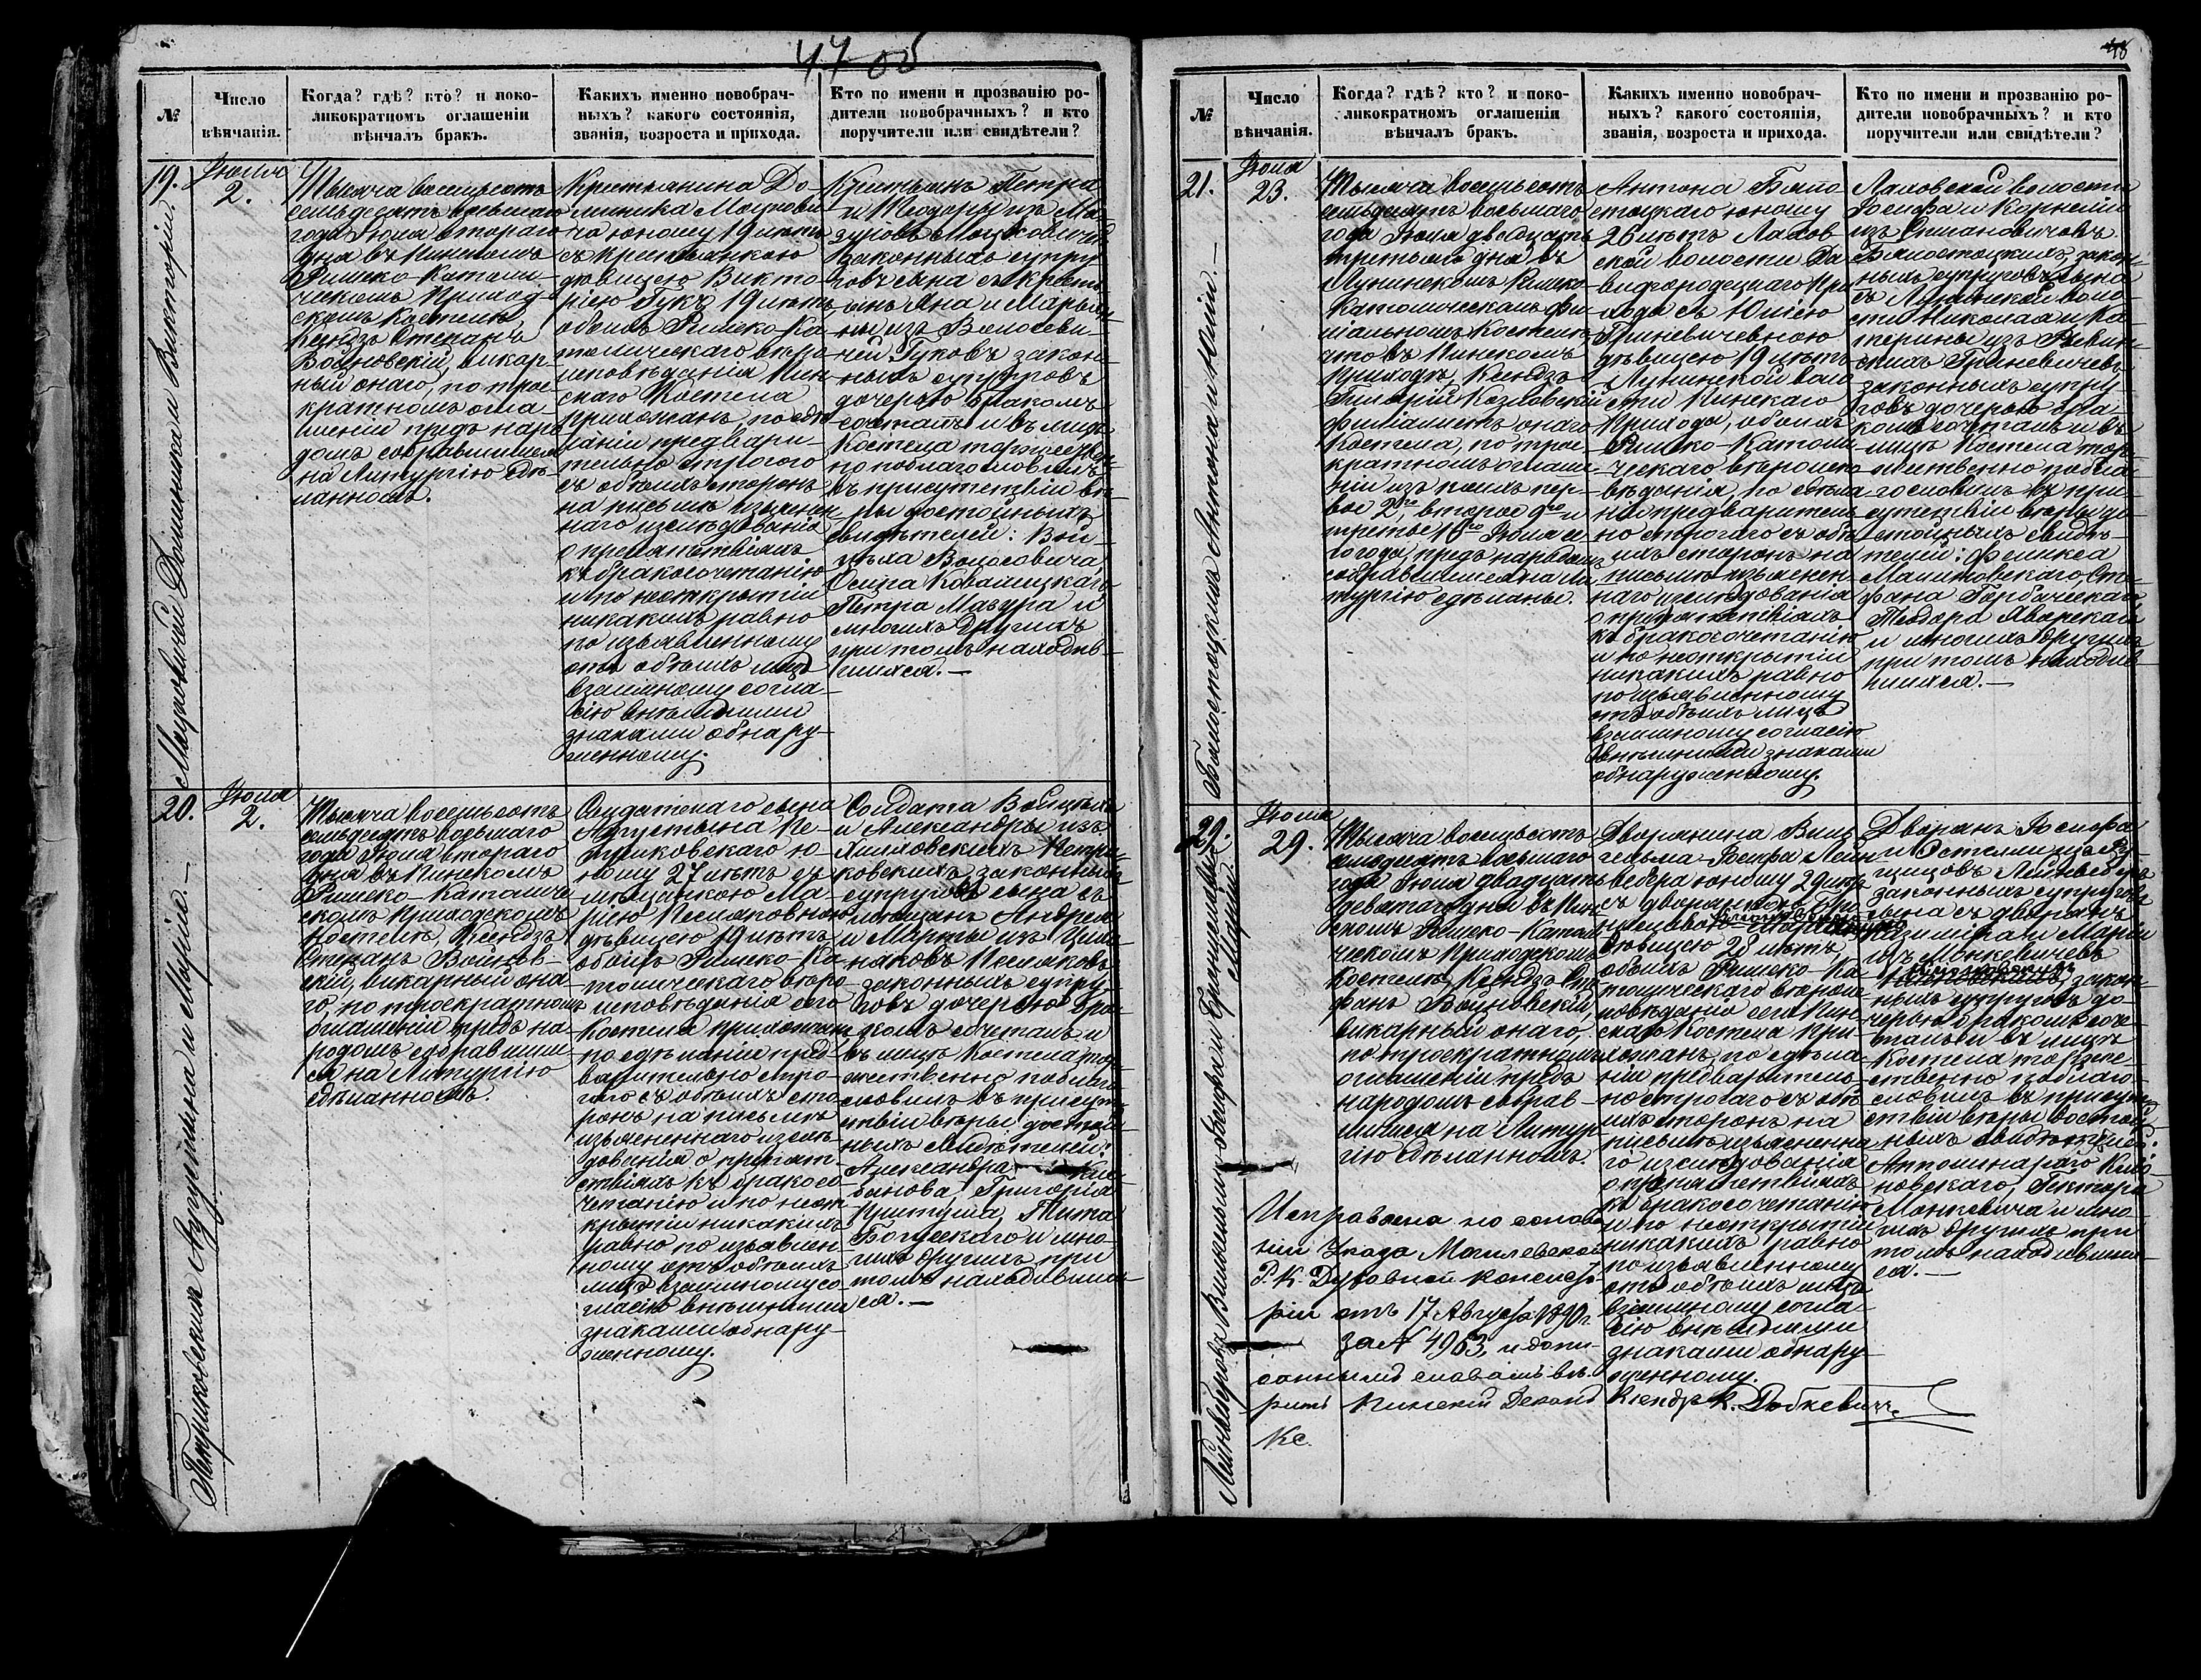 47 об
№
Число
вѣнчанія.
Когда? гдѣ? кто? и поко-
ликократномъ оглашеніи
вѣнчалъ бракъ.
Какихъ именно новобрач-
ныхъ? какого состоянія,
званія, возроста и прихода.
Кто по имени и прозванію ро-
дители новобрачныхъ? и кто
поручители или свидѣтели?
19.
Іюля
2.
Тысяча восемьсотъ
семьдесятъ восьмаго
года Іюля втораго
дня въ Пинскомъ
Римско-Католи-
ческомъ Приход-
скомъ Костелѣ
Ксендзъ Стефанъ
Войновскій, викар-
ный онаго, по трое-
кратномъ огла-
шеніи предъ наро-
домъ собравшимся
на Литургію сдѣ-
ланномъ.
Крестьянина До-
миника Моцкови-
ча юношу 19 лѣтъ
съ крестьянкою
дѣвицею Викто-
ріею Гукъ 19 лѣтъ,
обоихъ Римско-Ка-
толическаго вѣро-
исповѣданія Пин-
скаго Костела
прихожанъ, по сдѣ-
ланіи предвари-
тельно строгого
съ обоихъ сторонъ
на письмѣ изъяснен-
наго изслѣдованія
о препятствіяхъ
къ бракосочетанію
и по неоткрытіи
никакихъ равно
по изъявленному
отъ обоихъ лицъ
взаимному согла-
сію внѣшними
знаками обнару-
женному.
Крестьянъ Петра
и Теодоры изъ Ма-
зуровъ Моцковичей
законныхъ супру-
говъ сына съ кресть-
янъ Яна и Марьян-
ны изъ Волосеви-
чей Гуковъ закон-
ныхъ супруговъ
дочерью бракомъ
сочеталъ и въ лицѣ
Костела торжествен-
но поблагословилъ
въ присутствіи вѣ-
ры достойныхъ
свидѣтелей: Вой-
цѣха Волосовича
Осипа Ковалицкаго
Петра Мазура и
многихъ другихъ
при томъ находив-
шихся.—
Моцковичи Доминика и Викторіи.
20.
Іюля
2.
Тысяча восемьсотъ
семьдесятъ восьмаго
года Іюля втораго
дня въ Пинскомъ
Римско-Католиче-
скомъ Приходскомъ
Костелѣ, Ксендзъ
Стефанъ Войнов-
скій, викарный она-
го, по троекратномъ
оглашеніи предъ на-
родомъ собравшим-
ся на Литургію
сдѣланномъ.
Солдатскаго сына
Августына Пе-
триковскаго ю-
ношу 27 лѣтъ съ
мѣщанкою Ма-
ріею Песляковною
дѣвицею 19 лѣтъ
обоихъ Римско-Ка-
толическаго вѣро-
исповѣданія сего
Костела прихожанъ
по сдѣланіи пред-
варительно стро-
гого съ обоихъ сто-
ронъ на письмѣ
изъясненнаго изслѣ-
дованія о препят-
ствіяхъ къ бракосо-
четанію и по неот-
крытіи никакихъ
равно по изъявлен-
ному отъ обоихъ
лицъ взаимному со-
гласію внѣшними
знаками обнару-
женному.
Солдата Войцѣха
и Александры изъ
Хиляховскихъ Петри-
ковскихъ законныхъ
супруговъ сына съ
мѣщанъ Андрея
и Марты изъ
Песляковъ
законныхъ супру-
говъ дочерью бра-
комъ сочеталъ и
въ лицѣ Костела тор-
жественно поблаго-
словилъ въ присут-
ствіи вѣры достой-
ныхъ свидѣтелей:
Александра
Григорія
Тита
Богускаго и мно-
гихъ другихъ при
томъ находивших-
ся.—
Петриковскихъ Августына и Маріи.—
48
№
Число
вѣнчанія.
Когда? гдѣ? кто? и поко-
ликократномъ оглашеніи
вѣнчалъ бракъ.
Какихъ именно новобрач-
ныхъ? какого состоянія,
званія, возроста и прихода.
Кто по имени и прозванію ро-
дители новобрачныхъ? и кто
поручители или свидѣтели?
21.
Іюля
23.
Тысяча восемьсотъ
семьдесятъ восьмаго
года Іюля двадцать
третьяго дня въ
Лунинскомъ Римско-
Католическомъ Фи-
ліальномъ Костелѣ
что въ Пинскомъ
Приходѣ, Ксендзъ
Гиларій Козловскій
филіалистъ онаго
Костела, по трое-
кратномъ оглаше-
ніи изъ коихъ пер-
вое 2го, второе 9го и
третье 16го Іюля се-
го года, предъ народомъ
собравшимся на Ли-
тургію сдѣланы.
Антона Бяло-
стоцкаго юношу
26 лѣтъ Лахов-
ской волости Да-
видгородецкаго При-
хода съ Юліею
Гриневичевною
дѣвицею 19 лѣтъ
Лунинской воло-
сти Пинскаго
Прихода, обоихъ
Римско-Католи-
ческаго вѣроиспо-
вѣданія, по сдѣла-
ніи предваритель-
но строгаго съ обѣ-
ихъ сторонъ на
письмѣ изъяснен-
наго изслѣдованія
о препятствіяхъ
къ бракосочетанію
и по неоткрытіи
никакихъ равно
по изъявленному
отъ обоихъ лицъ
взаимному согласію
внѣшними знаками
обнаруженному.
Лаховской волости
Іосифа и Корнеліи
изъ Стшановичовъ
Бялостоцкихъ, закон-
ныхъ супруговъ сына
съ Лунинской воло-
сти Николая и Ка-
терины изъ
Гриневичевъ
законныхъ супру-
говъ дочерью бра-
комъ сочеталъ и въ
лицѣ Костела тор-
жественно побла-
гословилъ въ при-
сутствіи вѣры до-
стойныхъ свидѣ-
телей: Феликса
Малиновскаго, Сте-
фана
Теодора Яворскаго
и многихъ другихъ
при томъ находив-
шихся.—
Бялостоцкихъ Антона и Юліи.—
29.
Іюля
29.
Тысяча восемьсотъ
семьдесятъ восьмаго
года Іюля двадцать
девятаго дня въ Пин-
скомъ Римско-Католи-
ческомъ Приходскомъ
Костелѣ, Ксендзъ Сте-
фанъ Войновскій,
викарный онаго,
по троекратномъ
оглашеніи предъ
народомъ собрав-
шимся на Литур-
гію сдѣланномъ.
Дворянина Виль-
гельма-Іосифа Лейн-
вебера юношу 29 лѣтъ
съ дворянкою
дѣвицею 28 лѣтъ
обоихъ Римско-Ка-
толическаго вѣроис-
повѣданія сего Пин-
скаго Костела При-
хожанъ, по сдѣла-
ніи предваритель-
но строгаго съ обѣ-
ихъ сторонъ на
письмѣ изъясненна-
го изслѣдованія
о препятствіяхъ
къ бракосочетанію
и по неоткрытіи
никакихъ равно
по изъявленному
отъ обоихъ лицъ
взаимному согла-
сію внѣшними
знаками обнару-
женному.
Дворянъ Іосифа
и
Лейнвеберовъ
законныхъ супруговъ
сына съ дворянъ
Казиміра и Маріи
изъ
закон-
ныхъ супруговъ до-
черью бракомъ соче-
талъ и въ лицѣ
Костела торже-
ственно поблаго-
словилъ въ присут-
ствіи вѣры достой-
ныхъ свидѣтелей:
Апполинарія
Виктора
и мно-
гихъ другихъ при
томъ находивших-
ся.—
Исправлена на основа-
ніи Указа Могилевской
Р. К. Духовной Консисто-
ріи отъ 17 Августа 1890 г.
за N 4963, и допи-
саннымъ словамъ вѣ-
рить Пинскій Деканъ
Ксендзъ К. Добкевичъ
Кс.